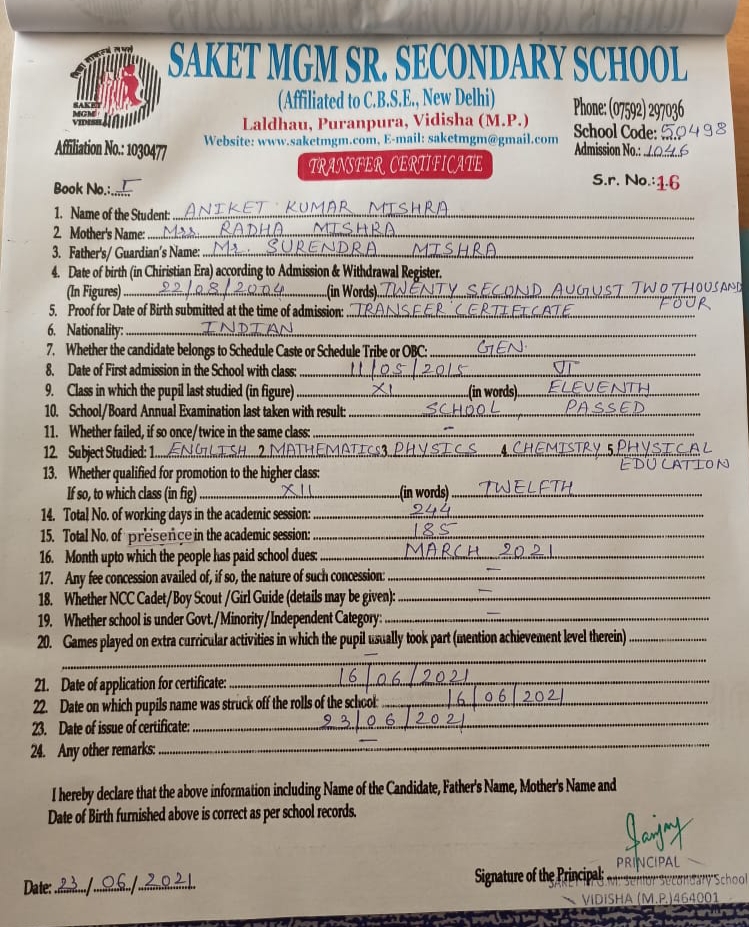 SAKET MGM SR. SECONDARY SCHOOL
(Affiliated to C.B.S.E., New Delhi)
Laldhau, Puranpura, Vidisha (M.P.)
Website: www.saketmgm.com, E-mail: saketmgm@gmail.com
SAKET
MGM
VIDISHA
Affiliation No.: 1030477
Phone: (07592) 297036
School Code: 50498
Admission No.: 1046
TRANSFER CERTIFICATE
Book No.: I
S.r. No.:16
1. Name of the Student: ANIKET KUMAR MISHRA
2. Mother's Name: Mrs. RADHA MISHRA
3. Father's/ Guardian's Name: Mr. SURENDRA MISHRA
4. Date of birth (in Chiristian Era) according to Admission & Withdrawal Register.
(In Figures) 22/08/2004 (in Words) TWENTY SECOND AUGUST TWO THOUSAND FOUR
5. Proof for Date of Birth submitted at the time of admission: TRANSFER CERTIFICATE
6. Nationality: INDIAN
7. Whether the candidate belongs to Schedule Caste or Schedule Tribe or OBC: GEN.
8. Date of First admission in the School with class: 11/05/2015 VI
9. Class in which the pupil last studied (in figure) XI (in words) ELEVENTH
10. School/Board Annual Examination last taken with result: SCHOOL PASSED
11. Whether failed, if so once/twice in the same class: -
12. Subject Studied: 1 ENGLISH 2 MATHEMATICS 3 PHYSICS 4 CHEMISTRY 5 PHYSICAL EDUCATION
13. Whether qualified for promotion to the higher class:
If so, to which class (in fig) XII (in words) TWELFTH
14. Total No. of working days in the academic session: 244
15. Total No. of presence in the academic session: 185
16. Month upto which the people has paid school dues: MARCH 2021
17. Any fee concession availed of, if so, the nature of such concession: -
18. Whether NCC Cadet/Boy Scout /Girl Guide (details may be given): -
19. Whether school is under Govt./Minority/Independent Category: -
20. Games played on extra curricular activities in which the pupil usually took part (mention achievement level therein)
-
21. Date of application for certificate: 16/06/2021
22. Date on which pupils name was struck off the rolls of the school: 16/06/2021
23. Date of issue of certificate: 23/06/2021
24. Any other remarks: -
I hereby declare that the above information including Name of the Candidate, Father's Name, Mother's Name and
Date of Birth furnished above is correct as per school records.
Date: 23/06/2021
Signature of the Principal:
PRINCIPAL
Senior Secondary School
VIDISHA (M.P.)464001